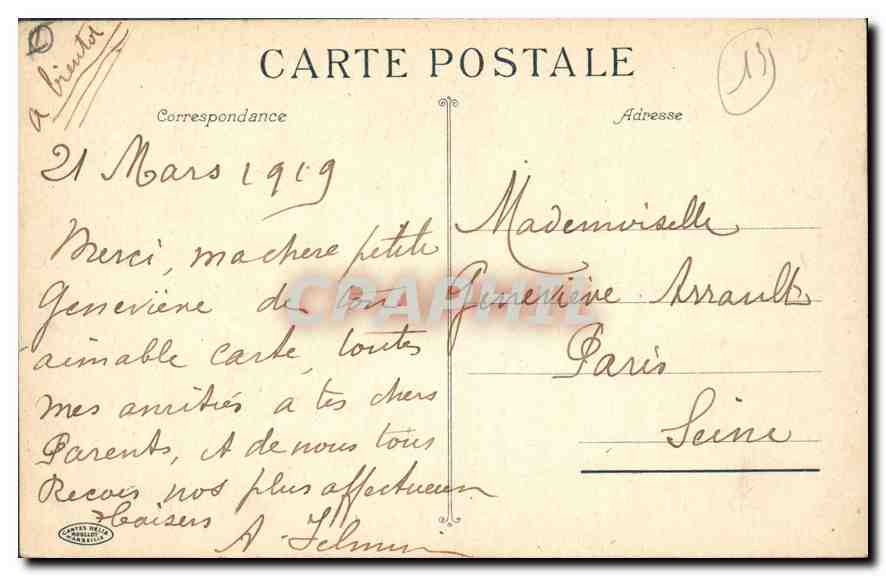 a bientot
CARTE POSTALE
13
Correspondance
Adresse
21 Mars 1919
Merci, ma chere petite
Geneviève de ton
aimable carte, toutes
mes amitiés à tes chers
Parents, et de nous tous
Recois nos plus affectueux
baisers
A.
Mademoiselle
Geneviève Arrault
Paris
Seine
CPAPHIL
CARTES HELIA
MOULLOT
MARSEILLE